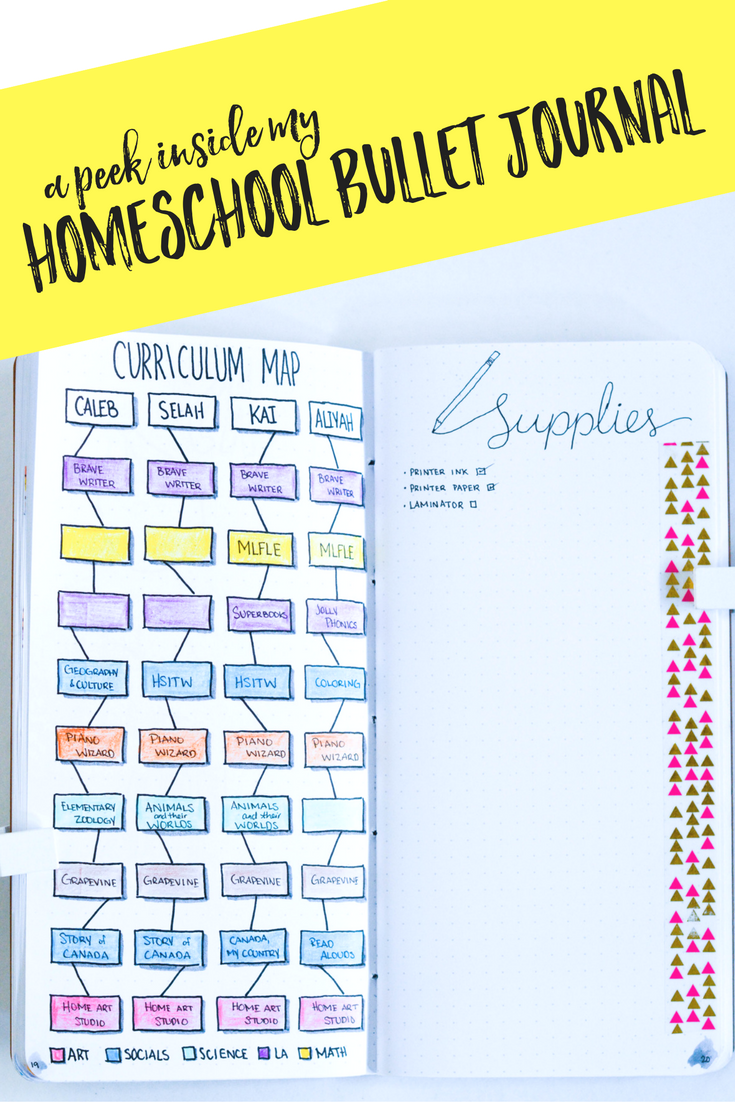 a peek inside my
HOMESCHOOL BULLET JOURNAL
CURRICULUM MAP
CALEB SELAH KAI ALIYAH
BRAVE WRITER BRAVE WRITER BRAVE WRITER BRAVE WRITER
MLFLE MLFLE
SUPERBOOKS JOLLY PHONICS
GEOGRAPHY & CULTURE HSITW HSITW COLORING
PIANO WIZARD PIANO WIZARD PIANO WIZARD PIANO WIZARD
ELEMENTARY ZOOLOGY ANIMALS and their WORLDS ANIMALS and their WORLDS
GRAPEVINE GRAPEVINE GRAPEVINE GRAPEVINE
STORY of CANADA STORY of CANADA CANADA, MY COUNTRY READ ALOUDS
HOME ART STUDIO HOME ART STUDIO HOME ART STUDIO HOME ART STUDIO
ART SOCIALS SCIENCE LA MATH
19
Supplies
• PRINTER INK ☑
• PRINTER PAPER ☑
• LAMINATOR ☐
20